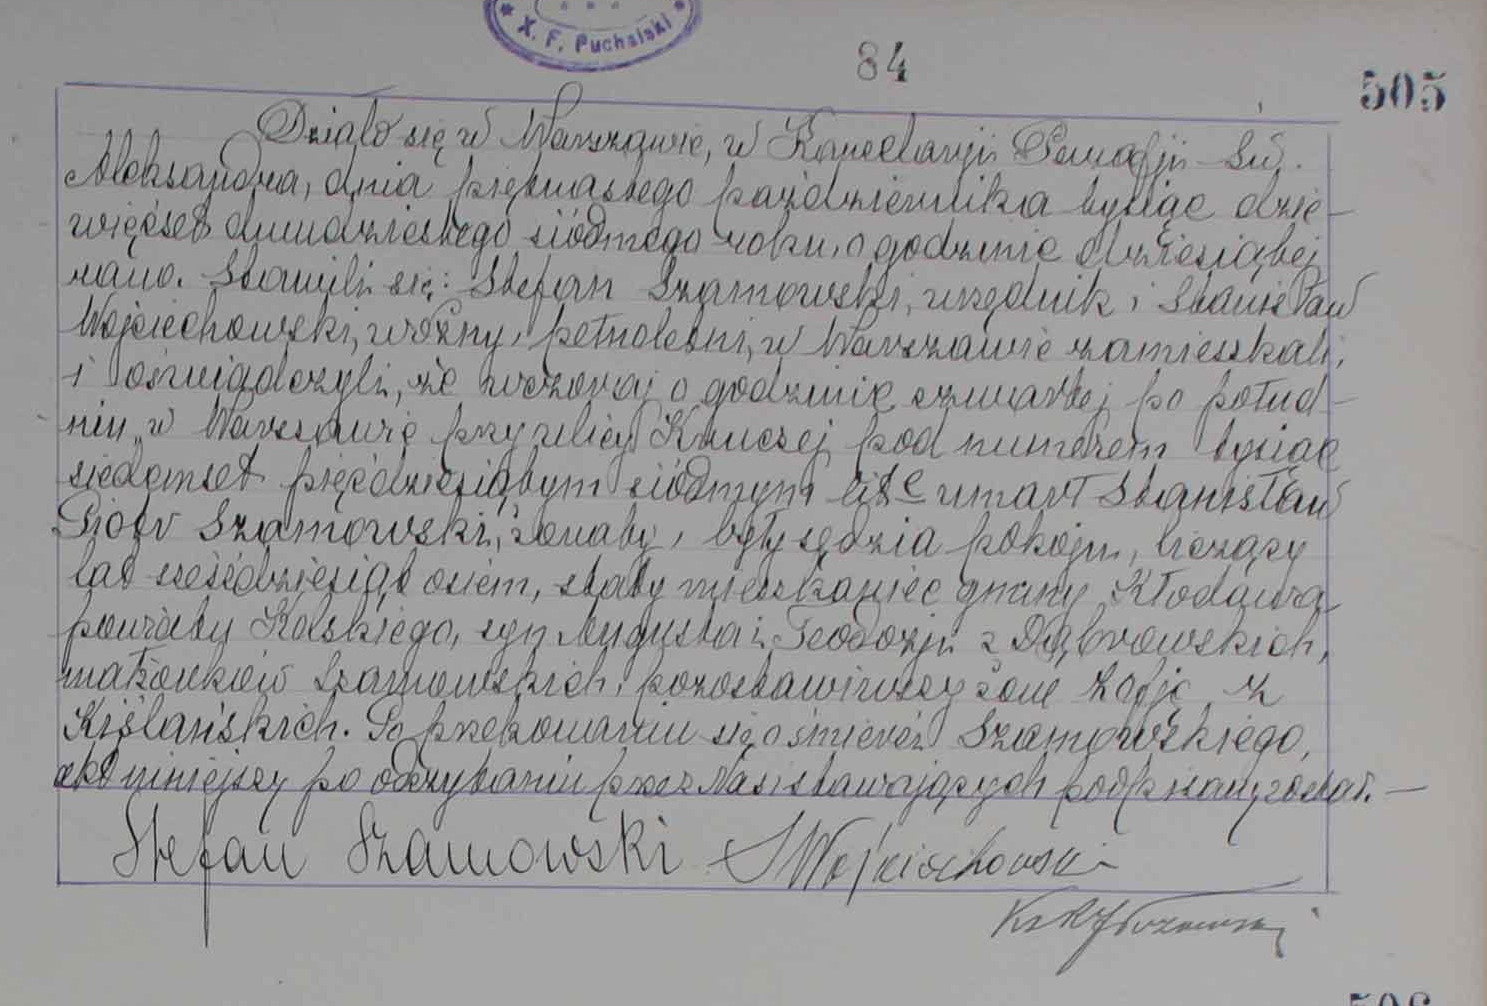 * X. F. Puchalski *
84
505
Działo się w Warszawie, w Kancelaryji Parafji Św.
Aleksandra, dnia piętnastego października tysiąc dzie-
więćset dwudziestego siódmego roku, o godzinie dziesiątej
rano. Stawili się: Stefan Szamowski, urzędnik i Stanisław
Wojciechowski, woźny, pełnoletni, w Warszawie zamieszkali,
i oświadczyli, że wczoraj o godzinie czwartej po połud-
niu w Warszawie przy ulicy Kruczej pod numerem tysiąc
siedemset pięćdziesiątym siódmym lit. C umarł Stanisław
Piotr Szamowski, żonaty, były sędzia pokoju, liczący
lat sześćdziesiąt osiem, stały mieszkaniec gminy Kłodawa
powiatu Kolskiego, syn Augusta i Teodozji z Dąbrowskich,
małżonków Szamowskich, pozostawiwszy żonę Zofję z
Kiślańskich. Po przekonaniu się o śmierci Szamowskiego,
akt niniejszy po odczytaniu przez Nas i stawających podpisany został. —
Stefan Szamowski SWojciechowski
Ks
506